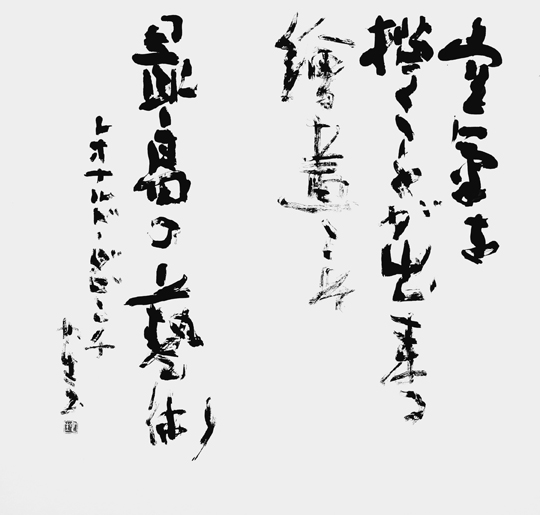 空氣を
描くことが出来る
繪畫こそ
最高の藝術
レオナルド・ダビンチ